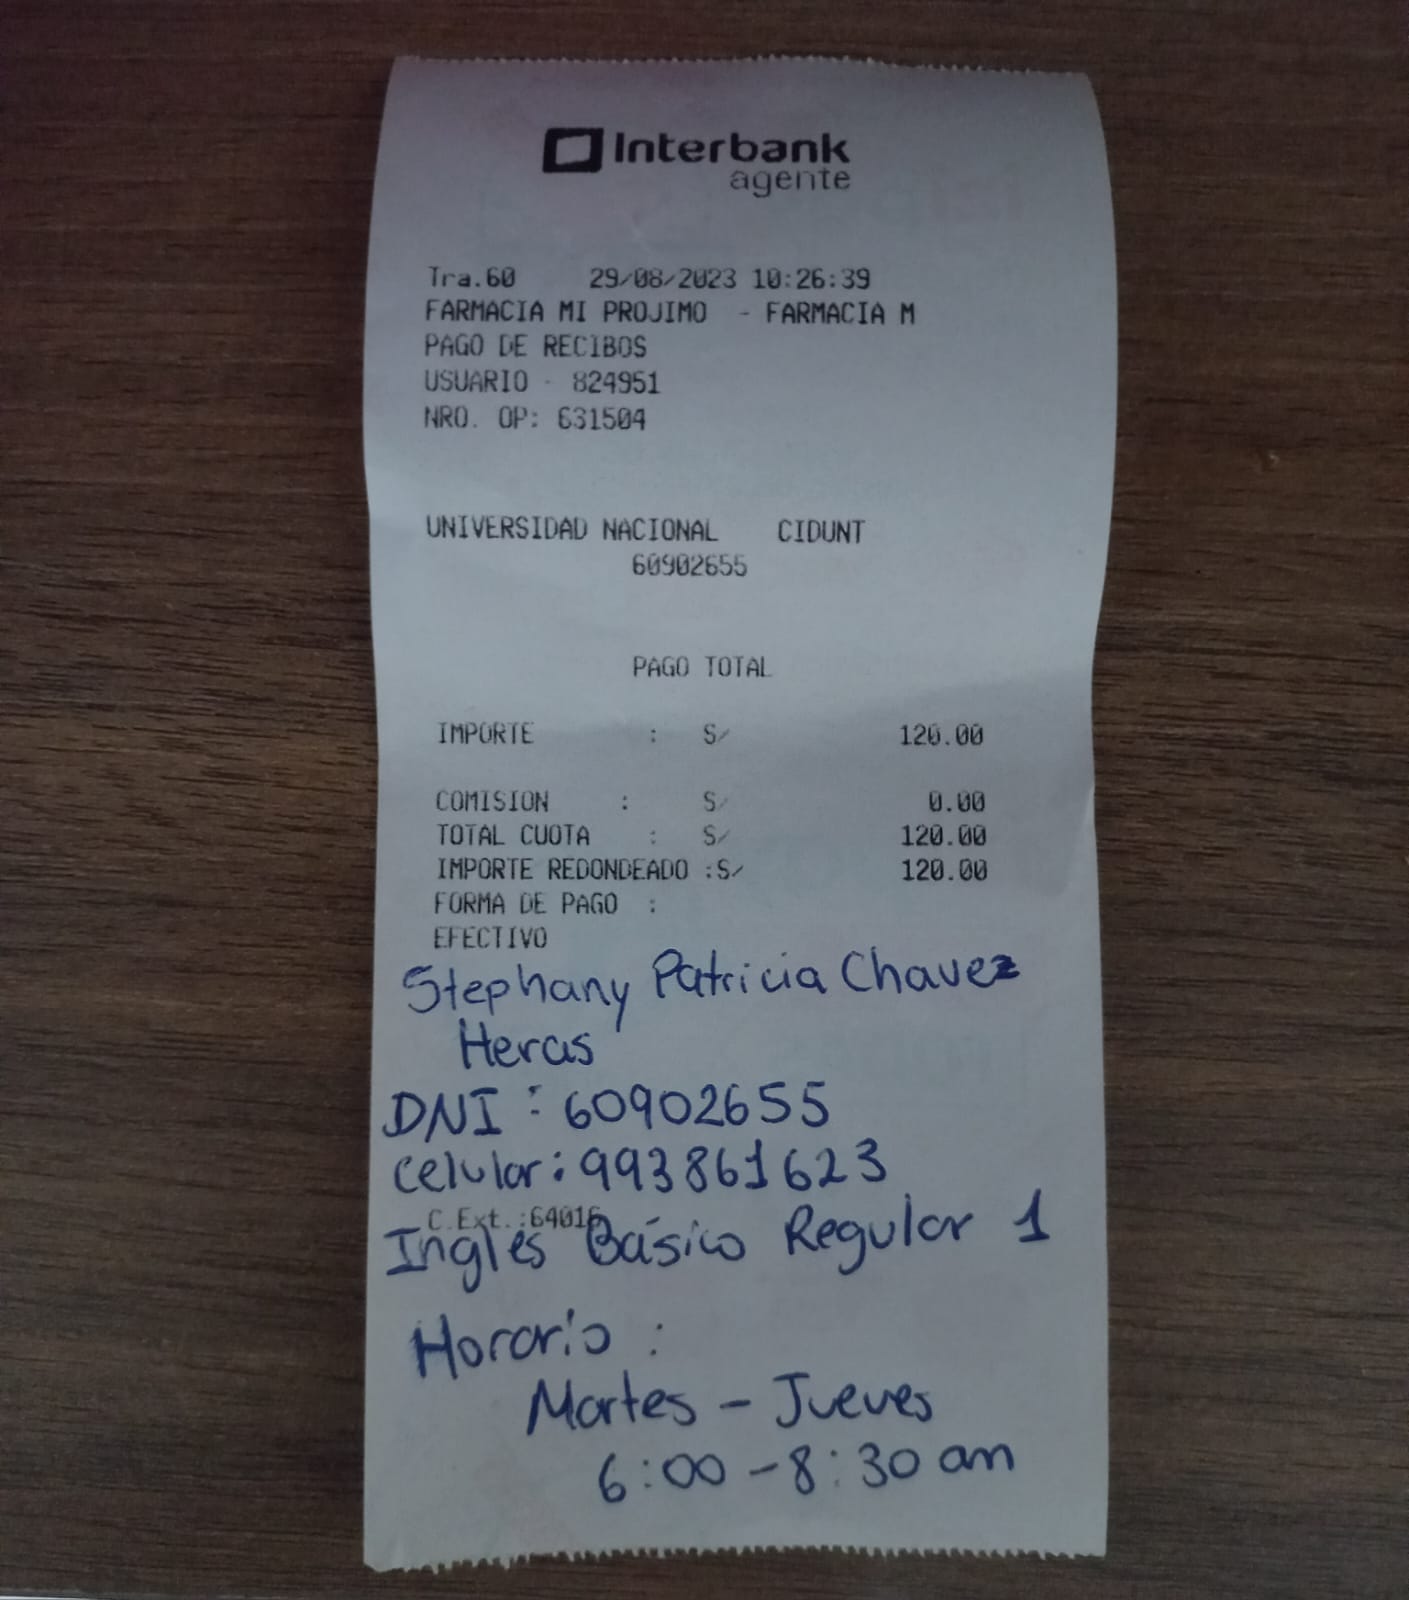 Interbank
agente
Tra.60 29/08/2023 10:26:39
FARMACIA MI PROJIMO - FARMACIA M
PAGO DE RECIBOS
USUARIO - 824951
NRO. OP: 631504
UNIVERSIDAD NACIONAL CIDUNT
60902655
PAGO TOTAL
IMPORTE : S/ 120.00
COMISION : S/ 0.00
TOTAL CUOTA : S/ 120.00
IMPORTE REDONDEADO :S/ 120.00
FORMA DE PAGO :
EFECTIVO
Stephany Patricia Chavez
Heras
DNI : 60902655
Celular: 993861623
C.Ext.:64016
Inglés Básico Regular 1
Horario :
Martes - Jueves
6:00 - 8:30 am